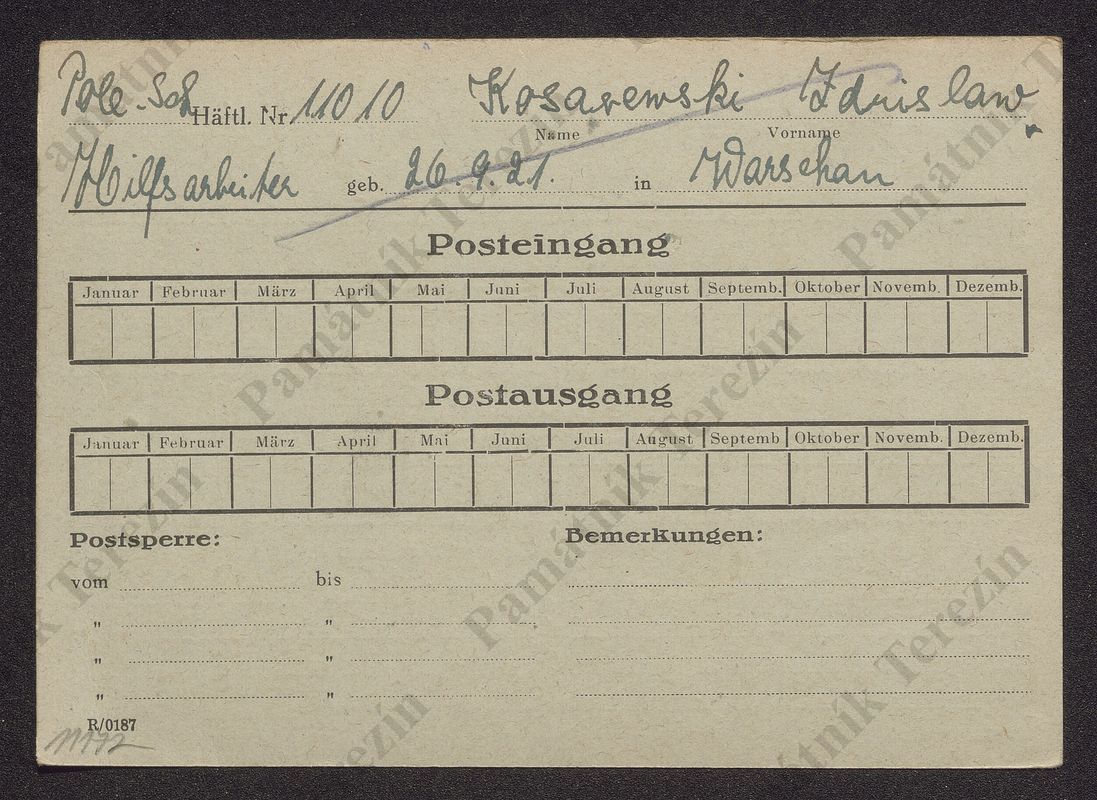 Pole-Sch Häftl. Nr. 11010 Kosarewski Zdzislaw
Name Vorname
Hilfsarbeiter geb. 26. 9. 21. in Warschau
Posteingang
Januar Februar März April Mai Juni Juli August Septemb. Oktober Novemb. Dezemb.
Postausgang
Januar Februar März April Mai Juni Juli August Septemb Oktober Novemb. Dezemb.
Postsperre: Bemerkungen:
vom bis
" "
" "
" "
R/0187
Památník Terezín